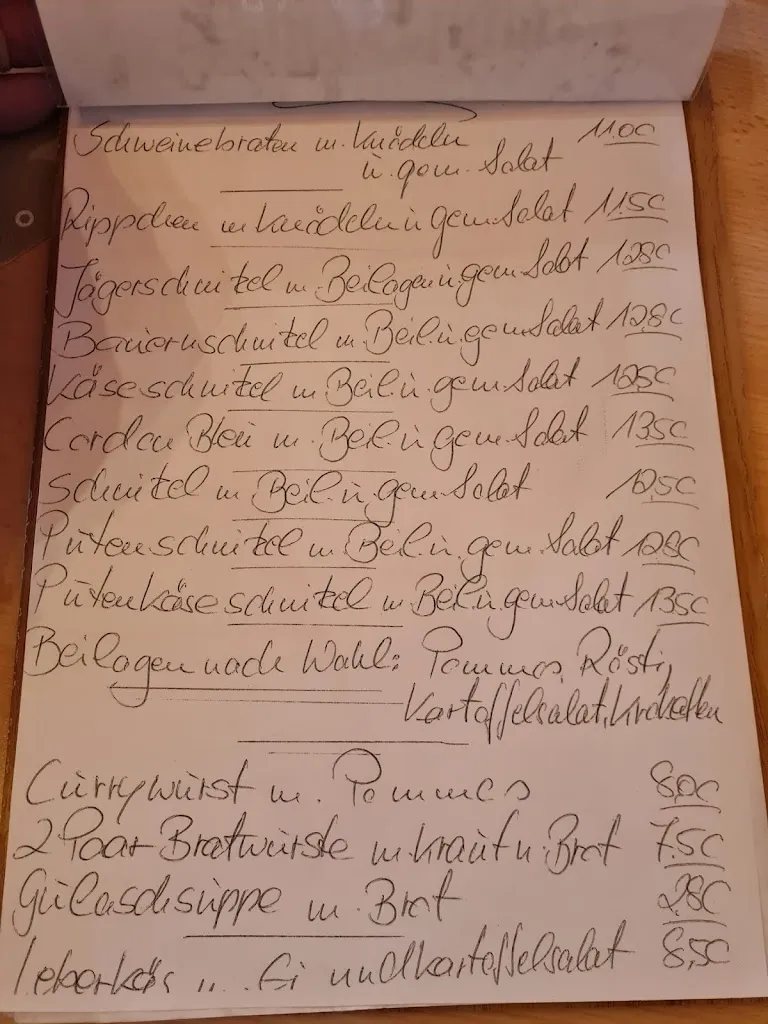 Schweinebraten m. Knödeln 11.00
u. gem. Salat
Rippchen m Knödeln u gem. Salat 11.50
Jägerschnitzel m. Beilagen u. gem. Salat 12.80
Bauernschnitzel m. Beil. u. gem. Salat 12,80
Käseschnitzel m Beil u. gem. Salat
Cordon Bleu m. Beil. u gem. Salat 13.50
Schnitzel m Beil. u. gem. Salat
Putenschnitzel m Beil. u. gem. Salat
Putenkäseschnitzel m Beil u. gem. Salat 13.50
Beilagen nach Wahl: Pommes, Rösti,
Kartoffelsalat, Kroketten
Currywurst m. Pommes 8,00
2 Paar Bratwürste m. Kraut u. Brot 7.50
Gulaschsuppe m. Brot
Leberkäs Ei und Kartoffelsalat 8,50